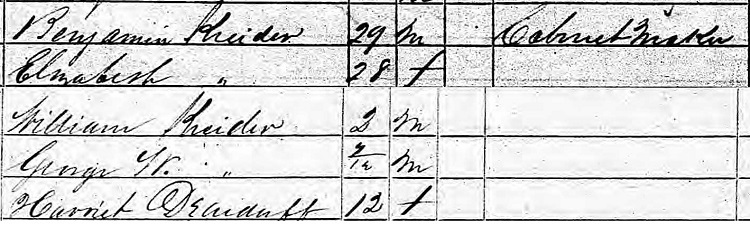 Benjamin Kreider 29 m Cabinet Maker
Elizabeth " 28 f
William Kreider 2 m
George W. " 7/12 m
Harriet Deardorff 12 f